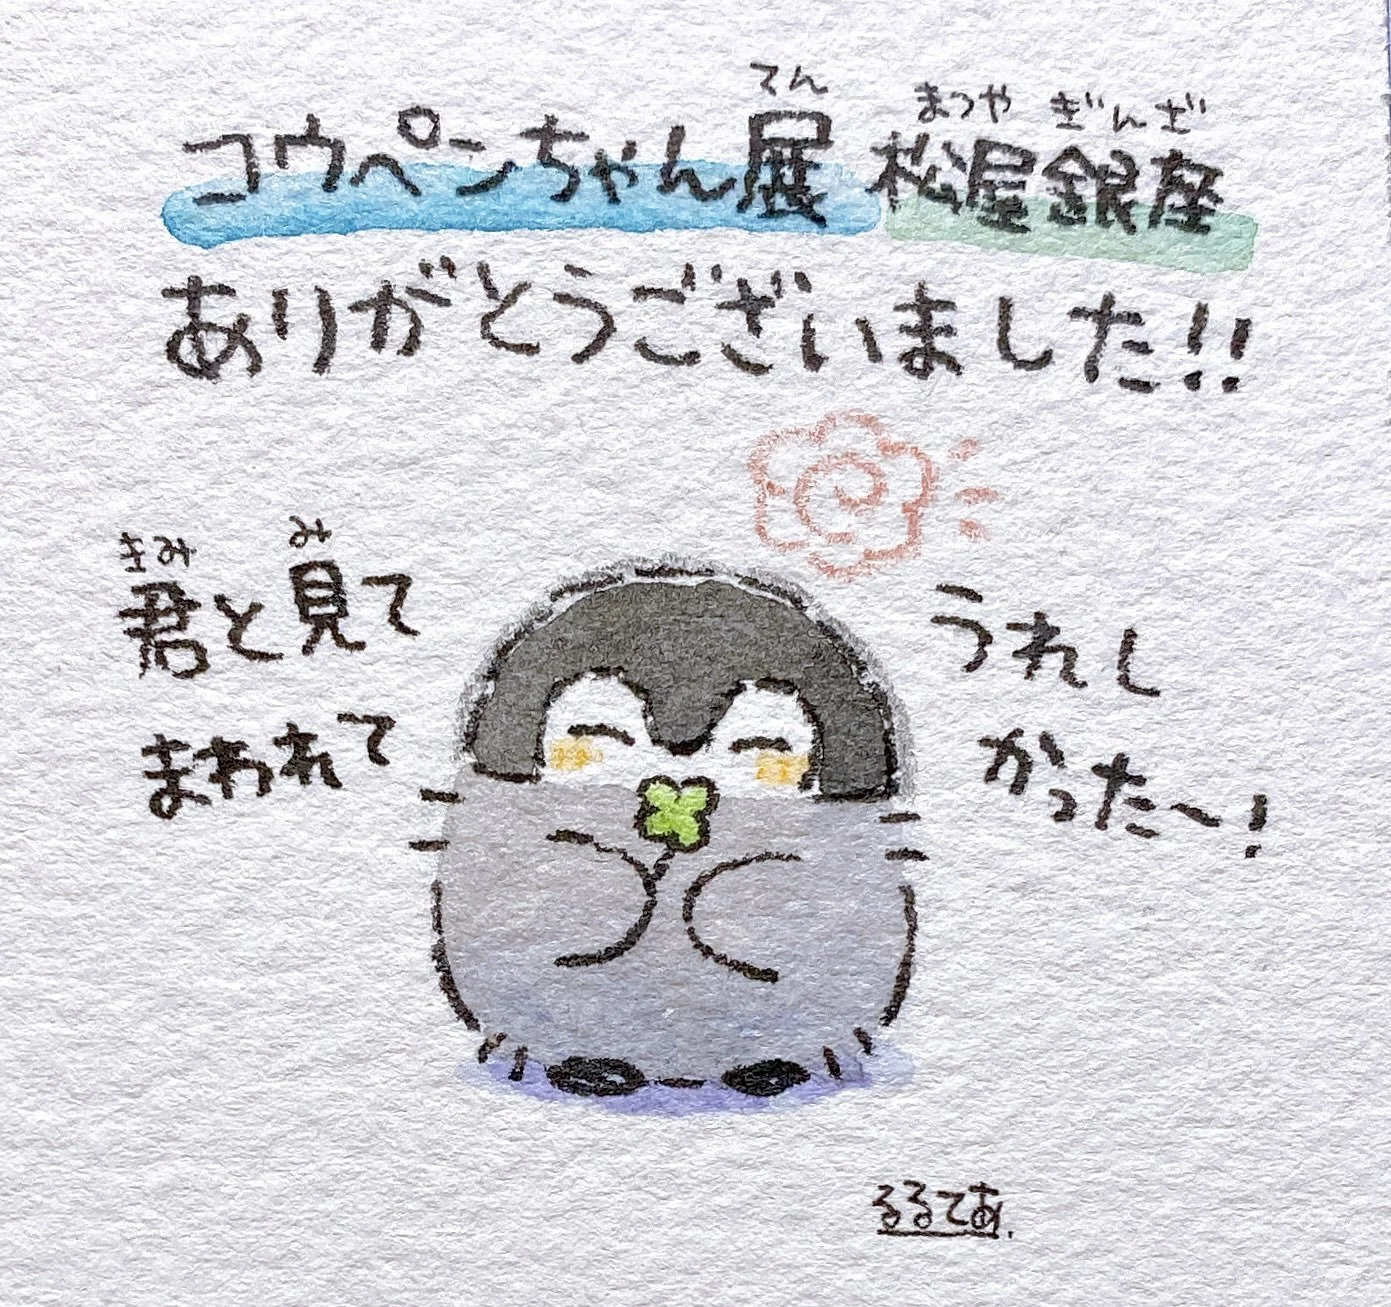 てん まつや ぎんざ
コウペンちゃん展 松屋銀座
ありがとうございました!!
きみ み
君と見て
まわれて
うれし
かった〜!
るるてあ.